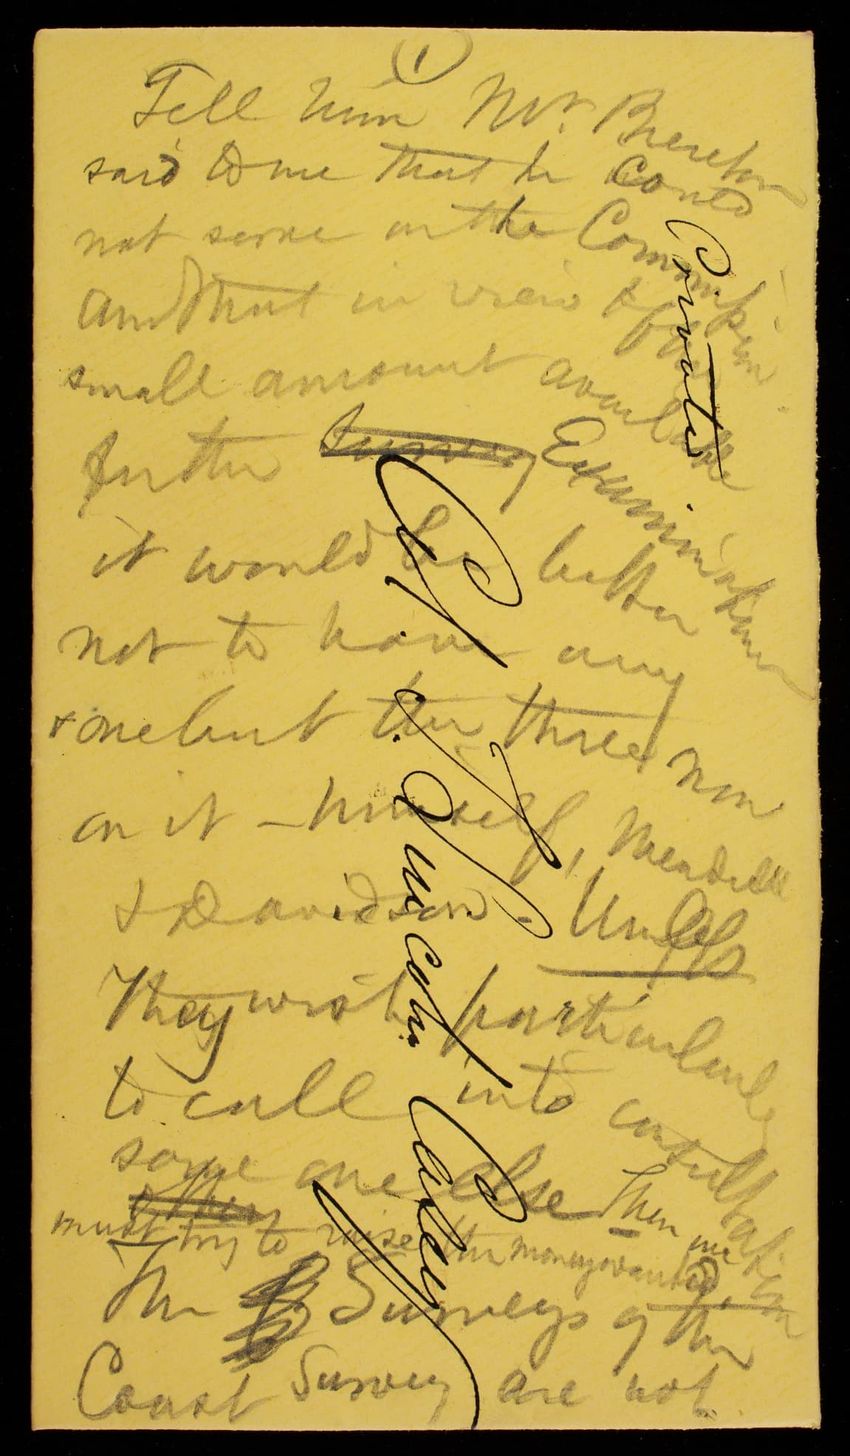 (1)
Tell him Mr. Brereton
said to me that he could
not serve on the Commission
and that in view of the
small amount available
further Survey Examination
it would be better
not to have any
one but the three now
on it – himself, Mendell
& Davidson Unless
They wish particularly
to call into consultation
some one else Then we
must try to raise the money wanted
The Surveys of the
Coast Survey are not
Private
Col. J. Duncan